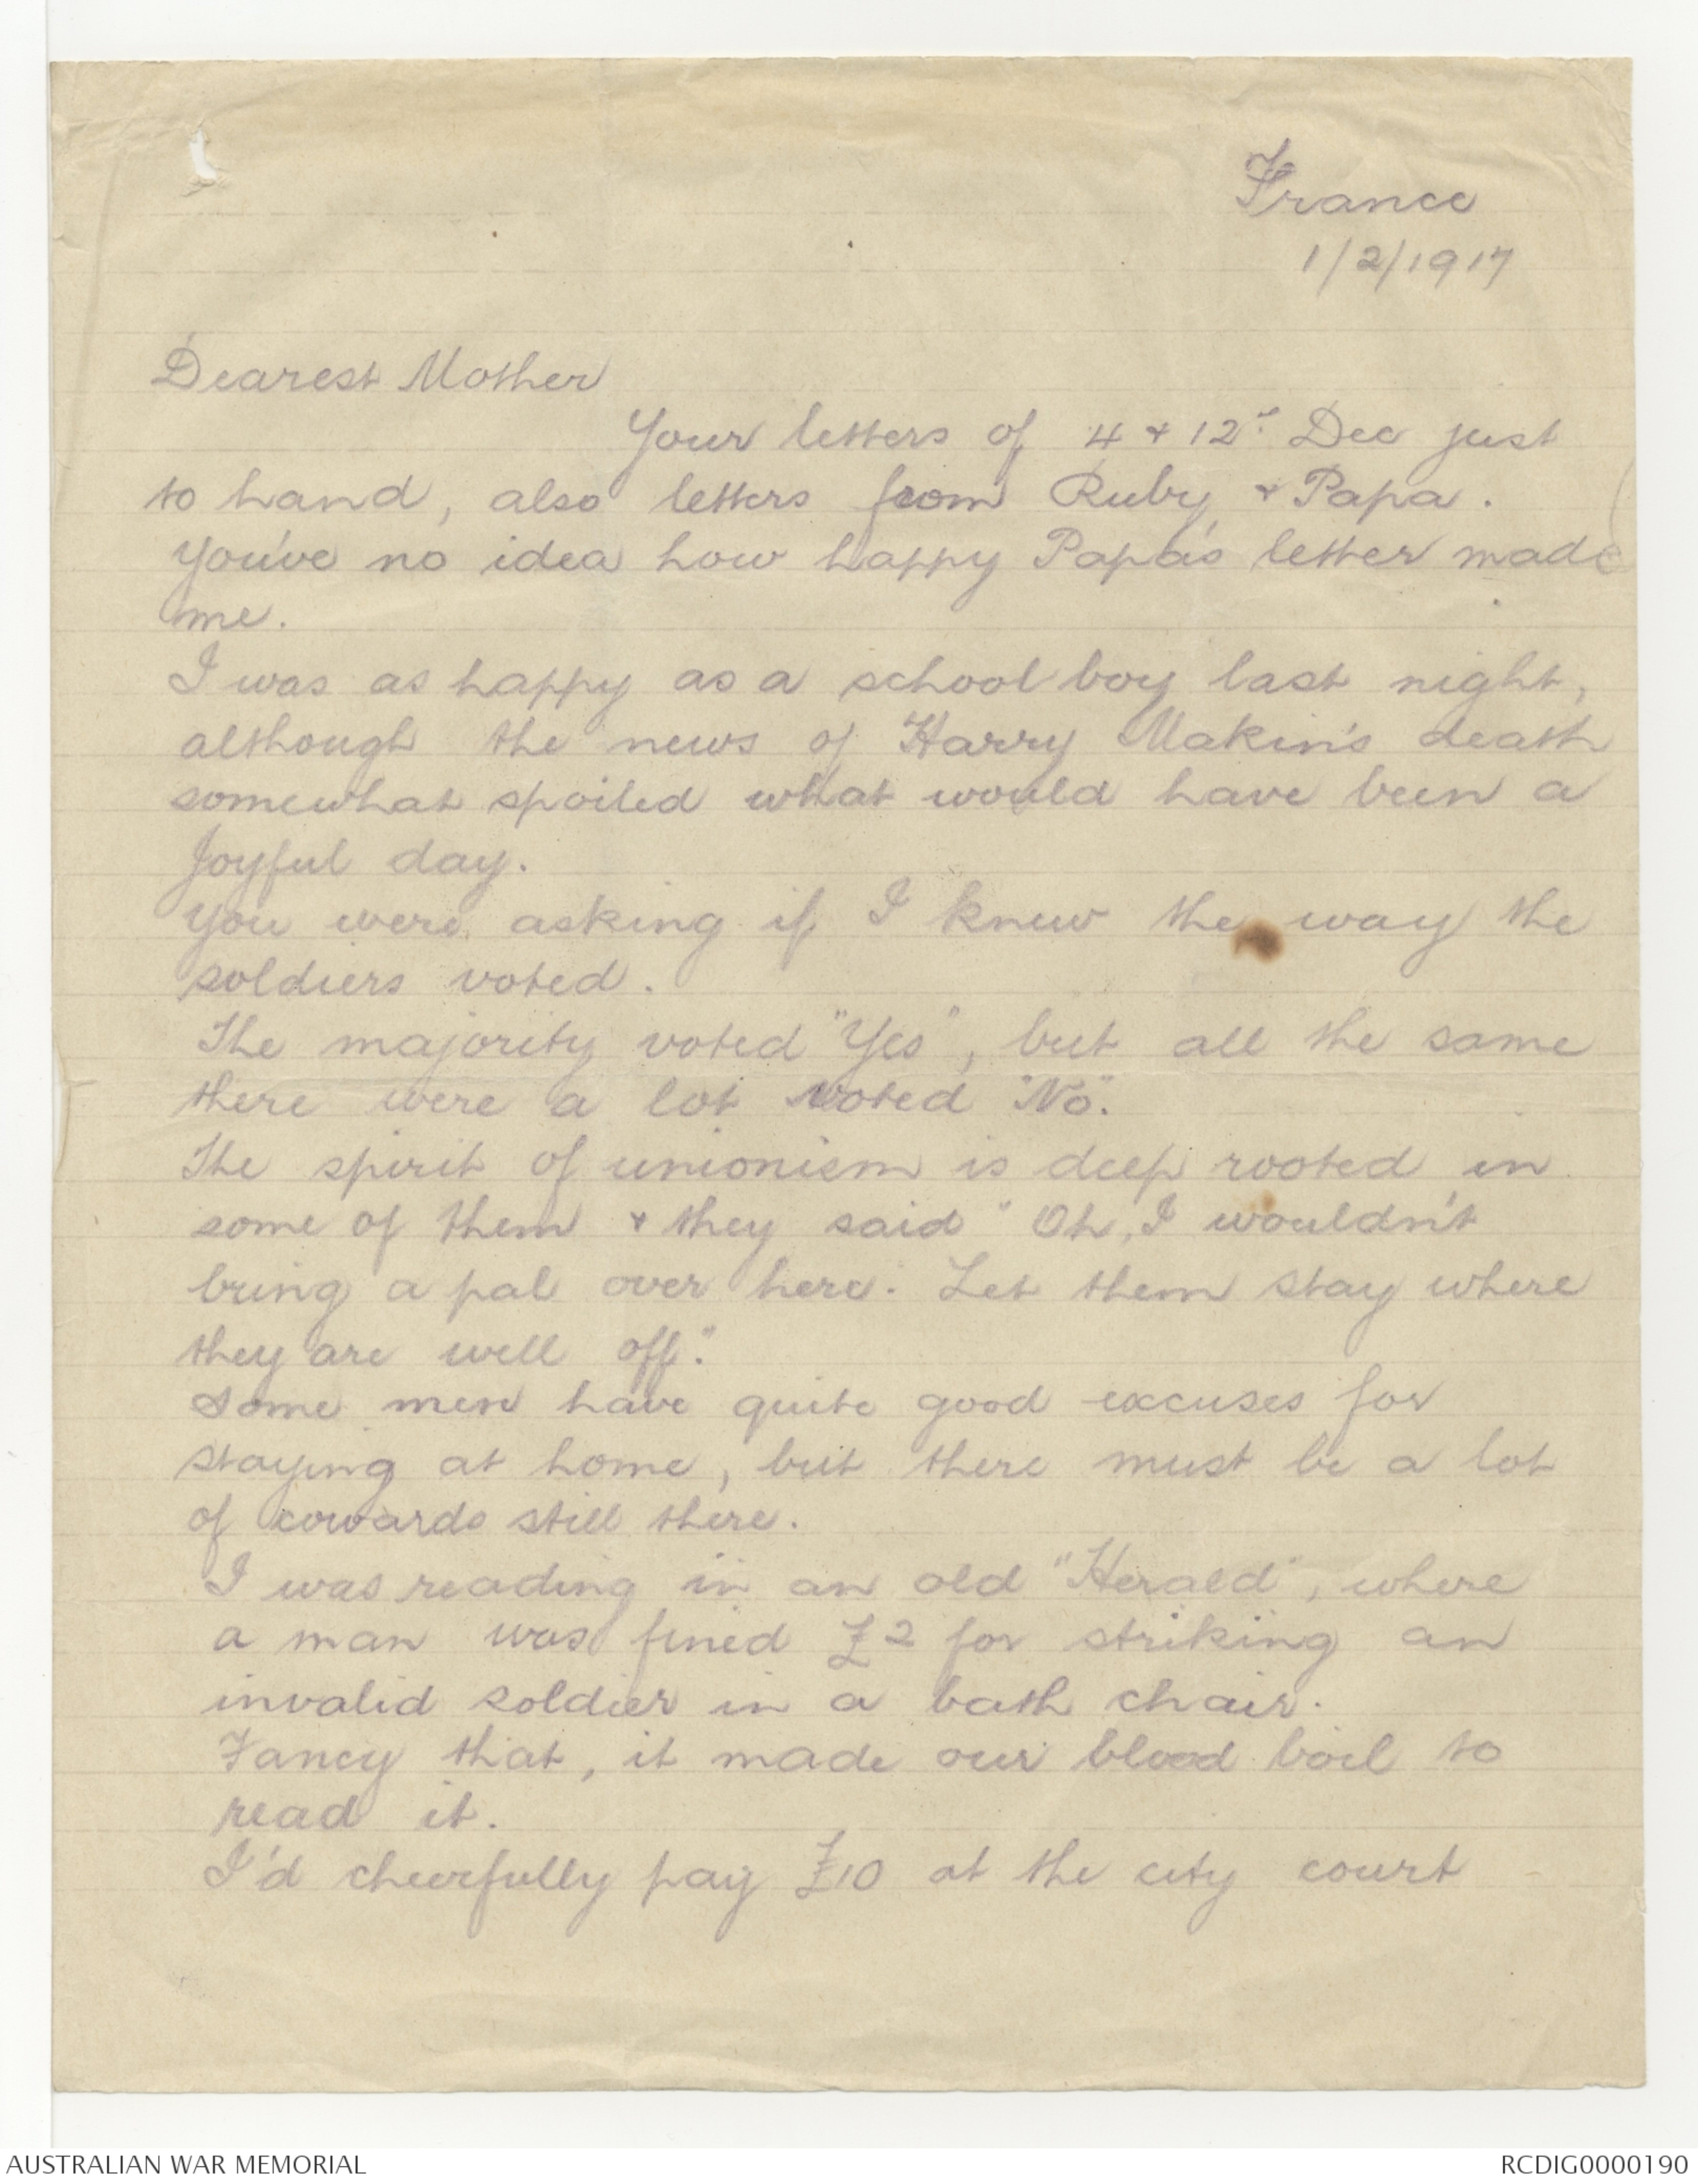 France
1/2/1917
Dearest Mother
Your letters of 4 & 12th Dec just
to hand, also letters from Ruby & Papa.
You've no idea how happy Papa's letter made
me.
I was as happy as a school boy last night,
although the news of Harry Makin's death
somewhat spoiled what would have been a
Joyful day.
You were asking if I knew the way the
soldiers voted.
The majority voted "Yes", but all the same
there were a lot voted "No".
The spirit of unionism is deep rooted in
some of them & they said "Oh, I wouldn't
bring a pal over here. Let them stay where
they are well off."
Some men have quite good excuses for
staying at home, but there must be a lot
of cowards still there.
I was reading in an old "Herald", where
a man was fined £2 for striking an
invalid soldier in a bath chair.
Fancy that, it made our blood boil to
read it.
I'd cheerfully pay £10 at the city court
AUSTRALIAN WAR MEMORIAL
RCDIG0000190